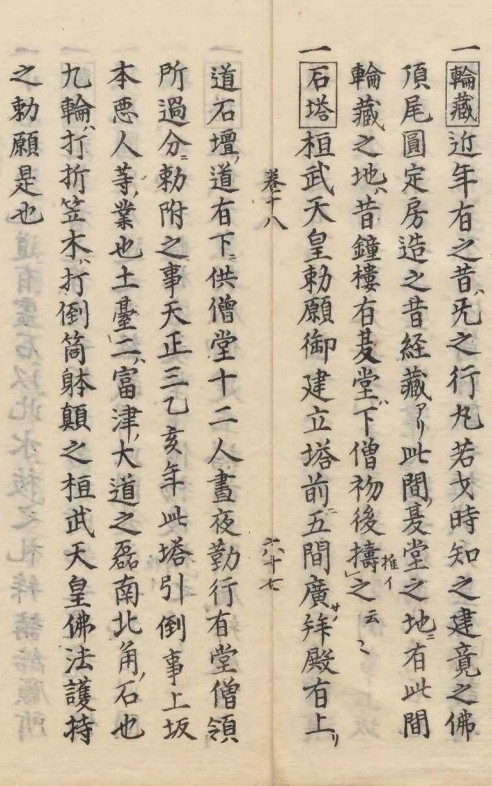 一輪藏近年有之昔、旡之行丸若戈時知之建竟之佛
頂尾圓定房造之昔経藏アリ此間、㝡堂之地ニ有此間
輪藏之地、昔鐘樓有㝡堂、下僧初後擣之云〻
推イ
一石塔桓武天皇勅願御建立塔前ニ五間廣サ拜殿有上リ
卷十八
六十七
道石壇、道有下ニ供僧堂十二人晝夜勤行有堂僧領
所過分ニ勅附之事天正三乙亥年此塔引倒事上坂
本悪人等、業也土臺ニ、富津、大道之磊南北角、石也
九輪、打折笠木、打倒筒躰顛之桓武天皇佛法護持
之勅願是也